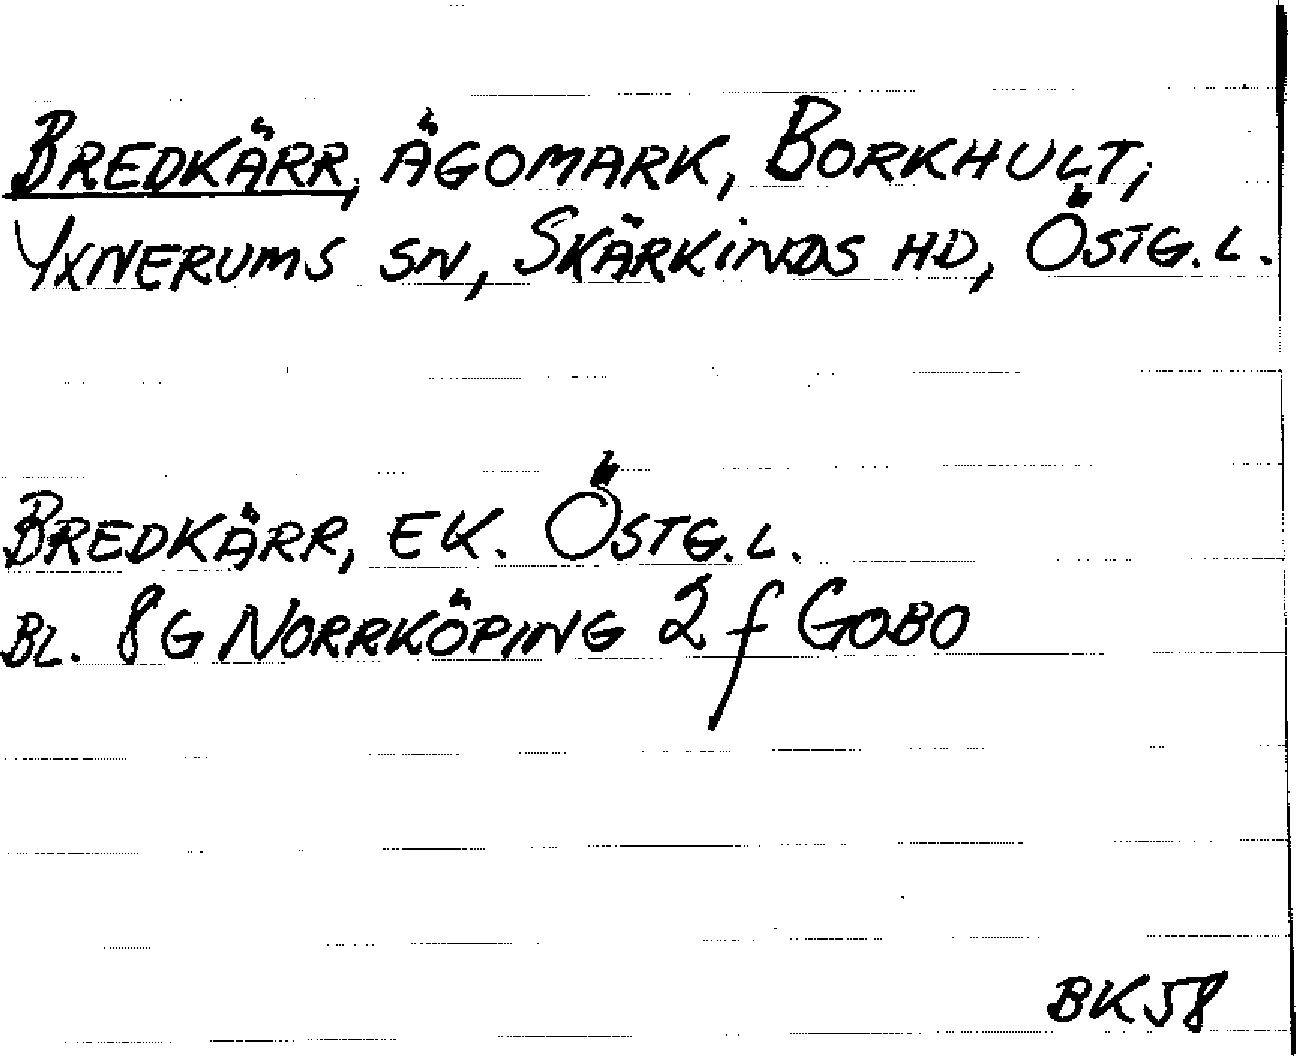 BREDKÄRR, ÄGOMARK, BORKHULT,
YXNERUMS SN, SKÄRKINDS HD, ÖSTG.L.
BREDKÄRR, EK. ÖSTG.L.
BL. 8G NORRKÖPING 2f GOBO
BK58